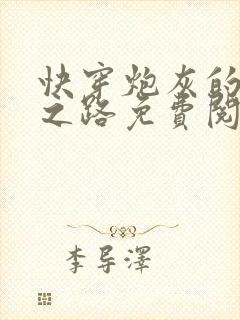 快穿炮灰的
之路免費閱
李导澤